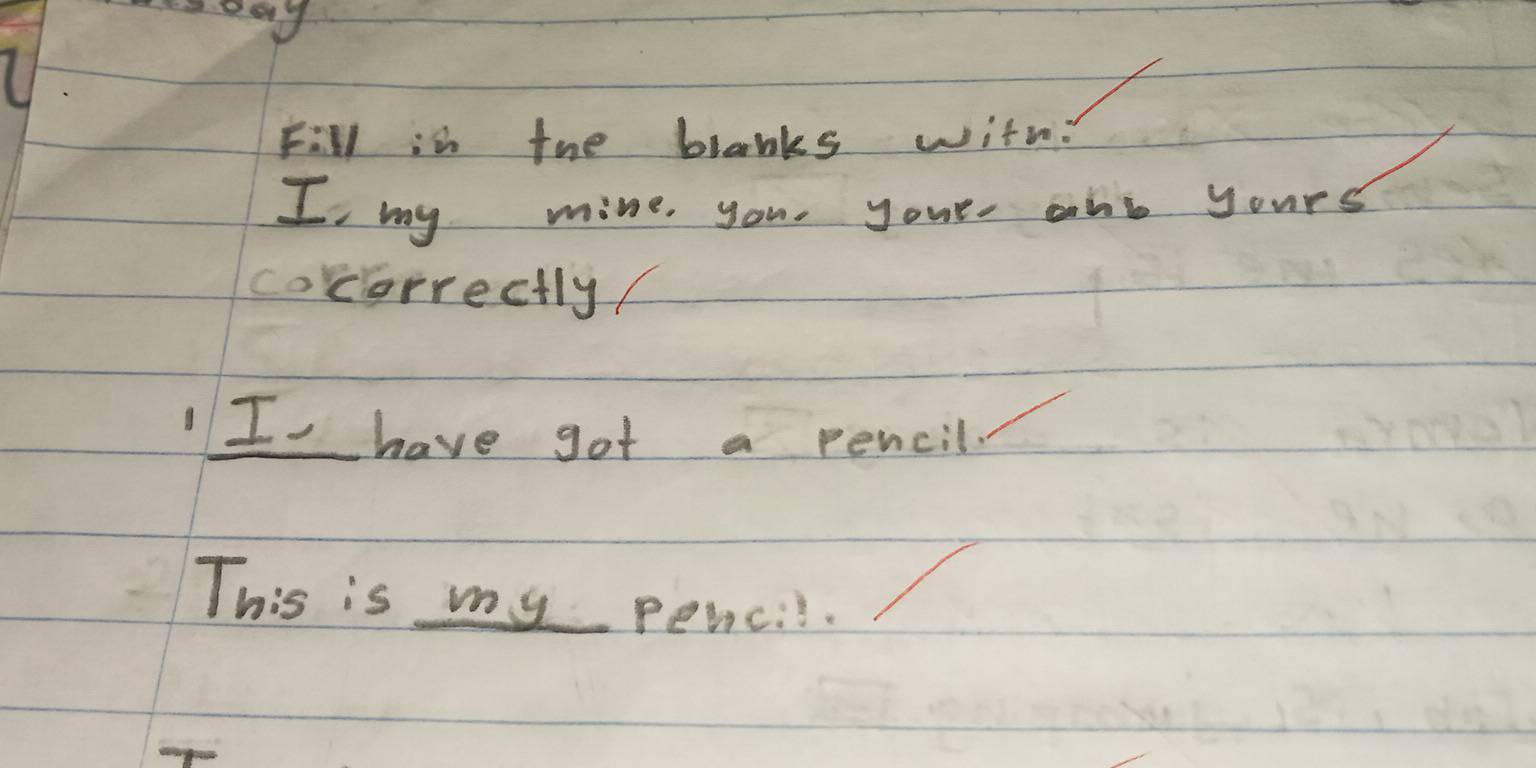 Fill in the blanks with:
I, my mine, you, your, and yours
correctly
1 I, have got a pencil.
This is my pencil.